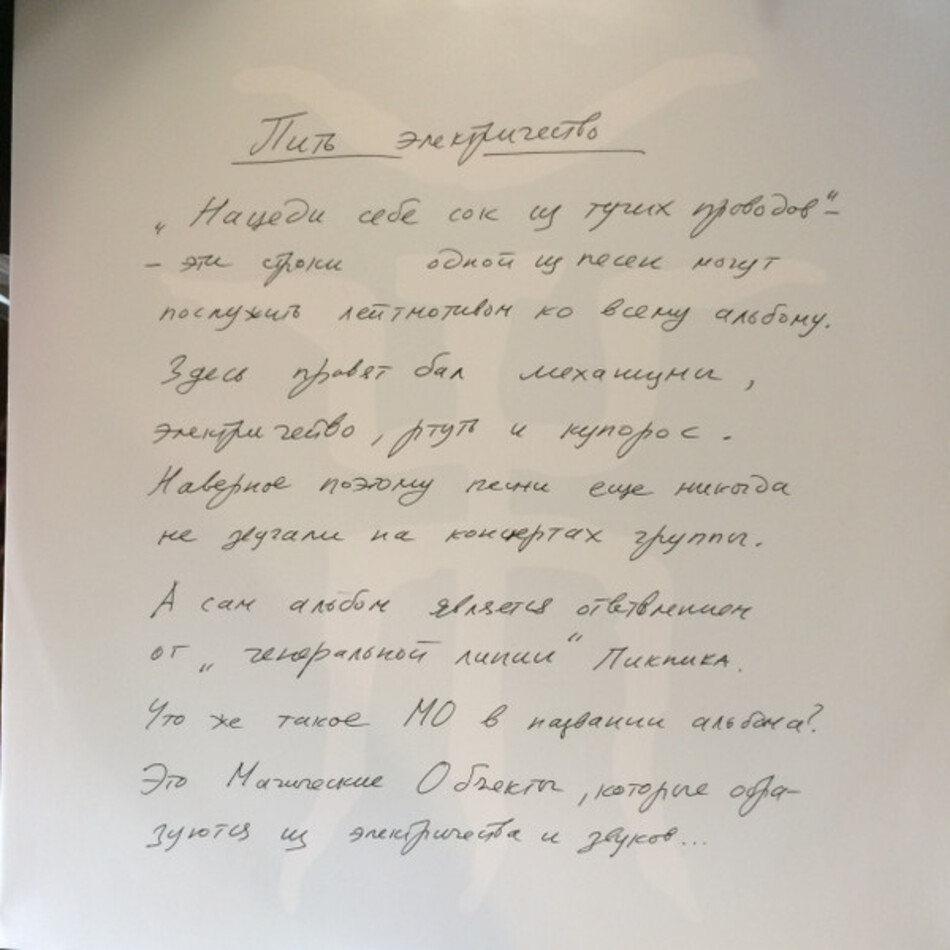 Пить электричество
„Нацеди себе сок из тугих проводов“–
– эти строки одной из песен могут
послужить лейтмотивом ко всему альбому.
Здесь правят бал механизмы,
электричество, ртуть и купорос.
Наверное поэтому песни еще никогда
не звучали на концертах группы.
А сам альбом является ответвлением
от „генеральной линии“ Пикника.
Что же такое МО в названии альбома?
Это Магические Объекты, которые обра-
зуются из электричества и звуков...